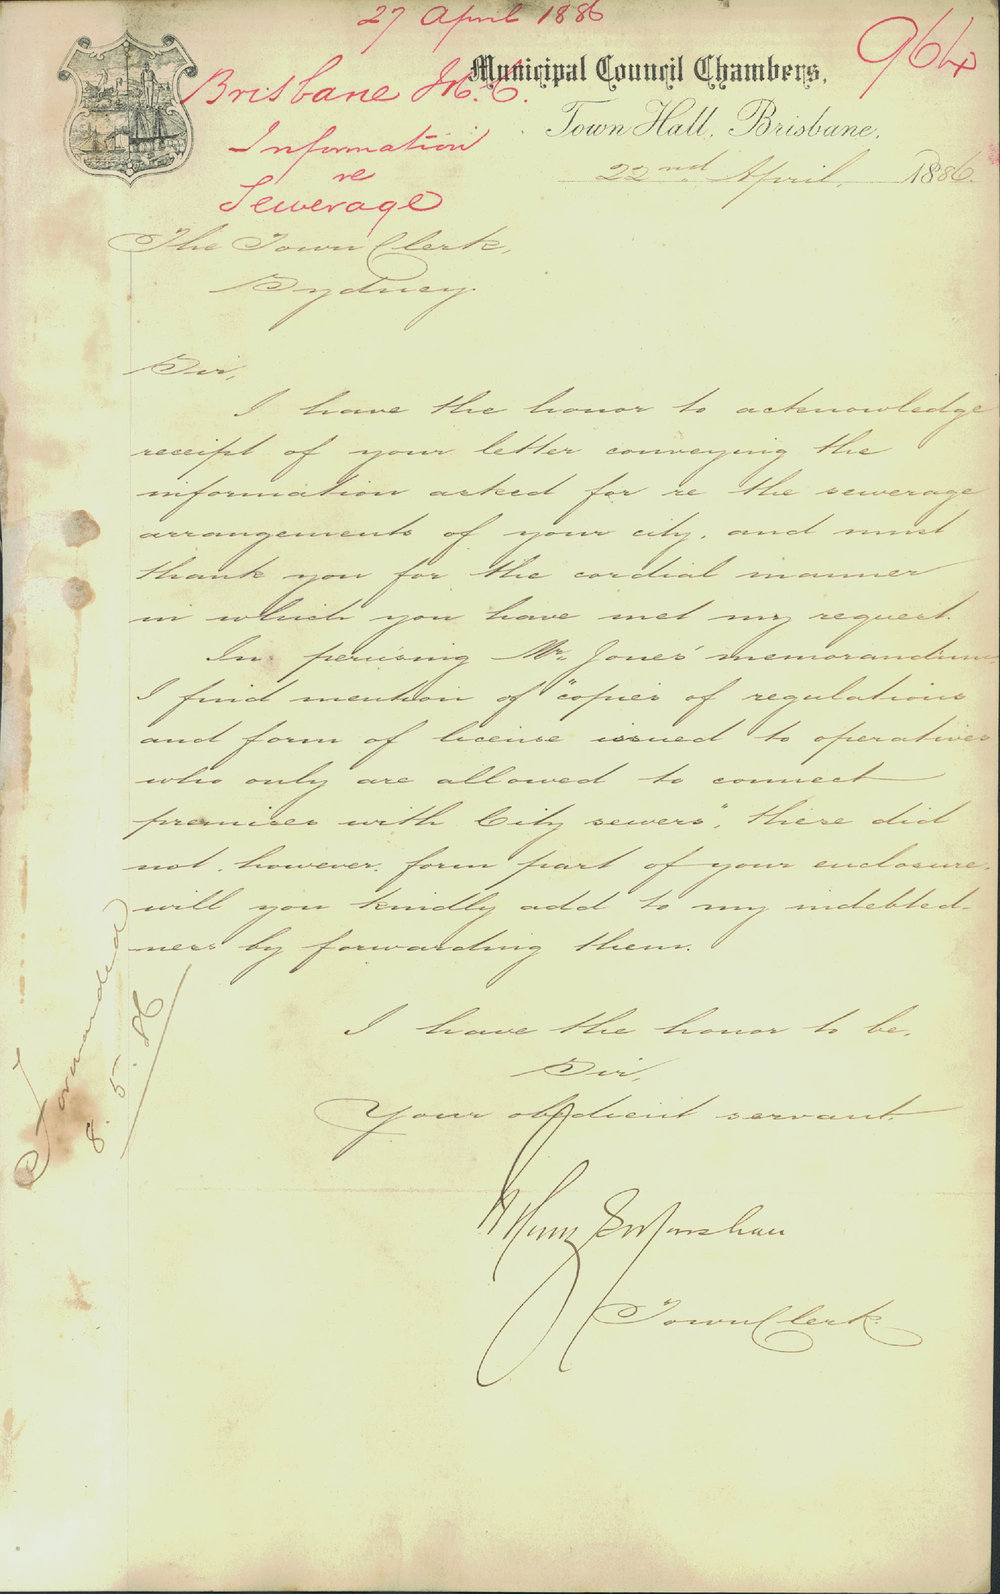 27 April 1886
964
Brisbane M.C.
Information
re
Sewerage
Municipal Council Chambers,
Town Hall, Brisbane,
22nd April, 1886.
The Town Clerk,
Sydney.
Sir,
I have the honor to acknowledge
receipt of your letter conveying the
information asked for re the sewerage
arrangements of your city, and must
thank you for the cordial manner
in which you have met my request.
In perusing Mr. Jones' memorandum,
I find mention of "copies of regulations
and form of license issued to operatives
who only are allowed to connect
premises with City sewers", these did
not, however, form part of your enclosure,
will you kindly add to my indebted-
ness by forwarding them.
I have the honor to be,
Sir,
Your obedient servant
Henry Marshall
Town Clerk.
Forwarded
8.5.86